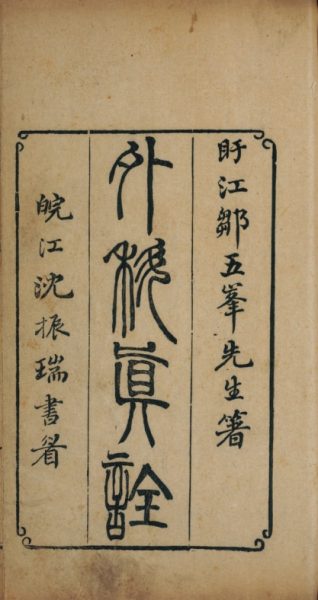 盱江鄒五峯先生箸
外科眞詮
皖江沈振瑞書